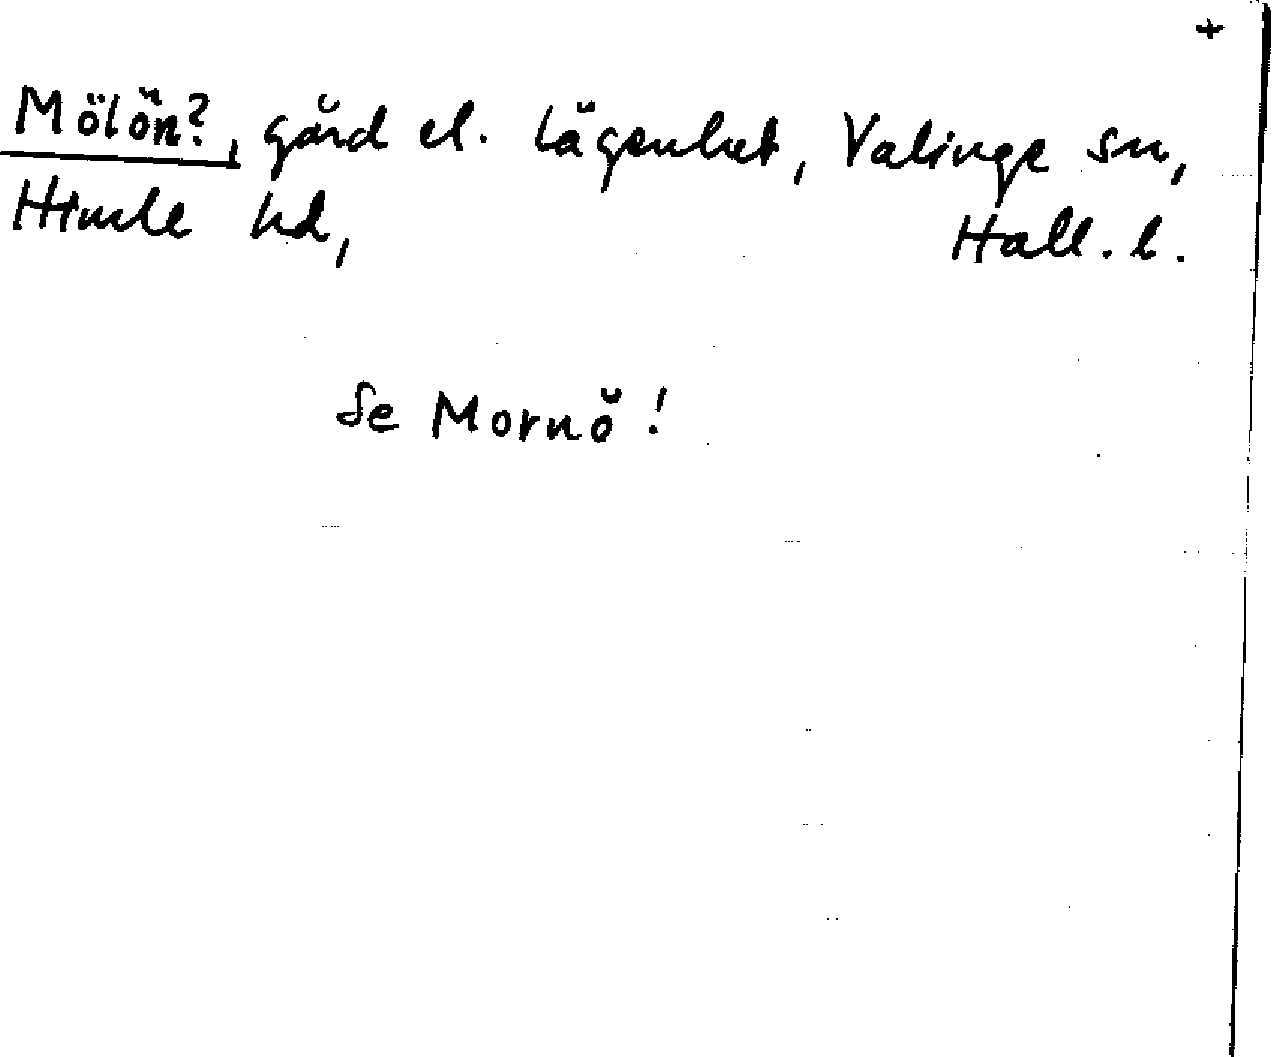 +
Mölön?, gård el. lägenhet, Valinge sn,
Himle hd, Hall. l.
Se Mornö!